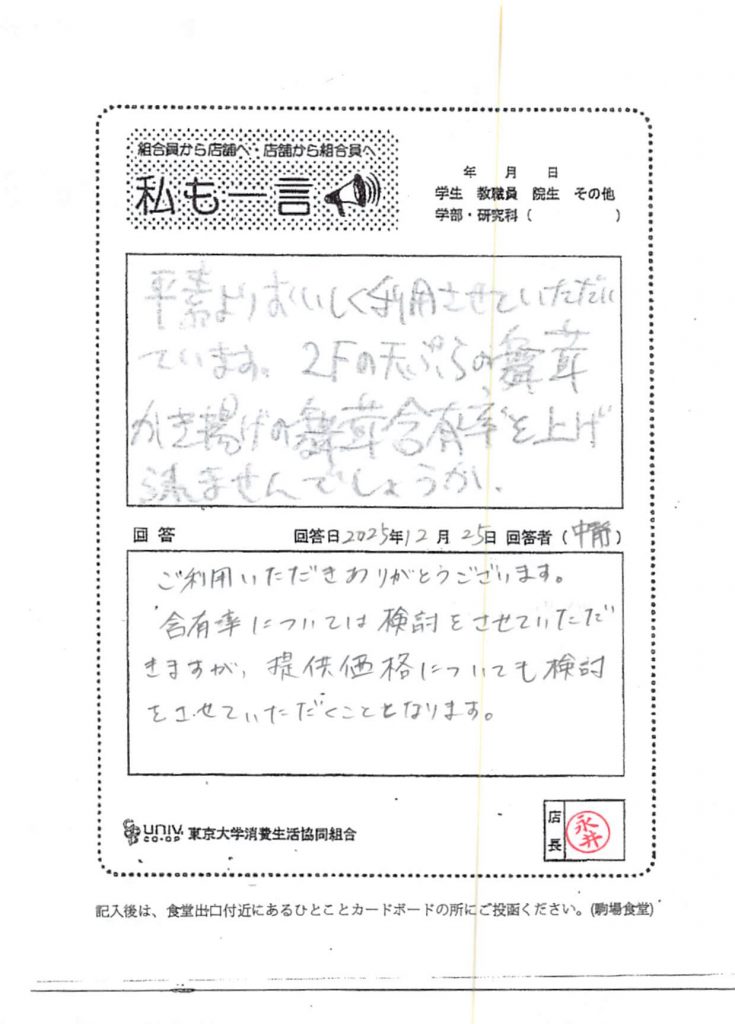 組合員から店舗へ・店舗から組合員へ
私も一言
年 月 日
学生 教職員 院生 その他
学部・研究科( )
平素よりおいしく利用させていただい
ています。2Fの天ぷらの舞茸
かき揚げの舞茸含有率を上げ
ませんでしょうか。
回答 回答日2025年12月25日 回答者(中静)
ご利用いただきありがとうございます。
含有率については検討をさせていただ
きますが、提供価格についても検討
をさせていただくこととなります。
店長
永井
UNIV CO-OP 東京大学消費生活協同組合
記入後は、食堂出口付近にあるひとことカードボードの所にご投函ください。(駒場食堂)